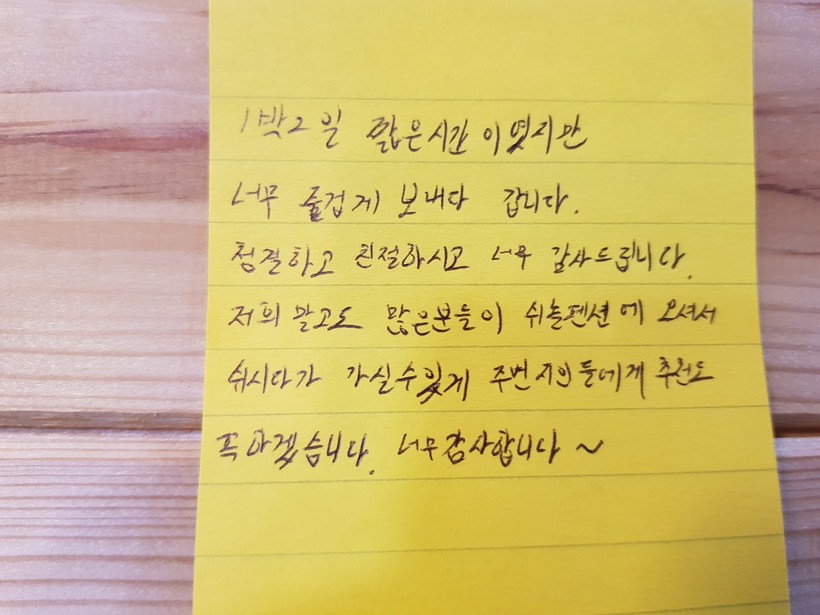 1박2일 짧은시간 이였지만
너무 즐겁게 보내다 갑니다.
청결하고 친절하시고 너무 감사드립니다.
저희 말고도 많은분들이 쉬놀펜션에 오셔서
쉬시다가 가실수있게 주변지인들에게 추천도
꼭 하겠습니다. 너무감사합니다 ~